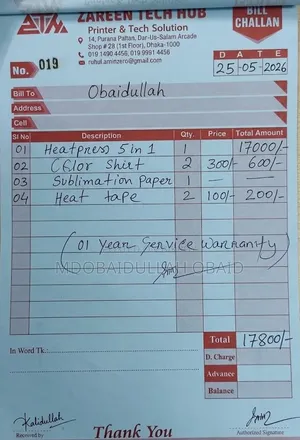 ZAREEN TECH HUB
Printer & Tech Solution
14, Purana Paltan, Dar-Us-Salam Arcade
Shop # 28 (1st Floor), Dhaka-1000
019 1490 4456, 019 9991 4456
BILL
CHALLAN
No. 019
DATE
25-05-2026
Bill To Obaidullah
Address
Cell
Sl No Description Qty. Price Total Amount
01 Heatpress 5 in 1 1 17000/-
02 Color Shirt 2 300/- 600/-
03 Sublimation Paper 1 — —
04 Heat tape 2 100/- 200/-
(01 Year Service Warranty)
MDOBAIDULLAH OBAID
Total 17800/-
In Word Tk.:
D. Charge
Advance
Balance
Kalidullah
Received by
Thank You
Authorized Signature